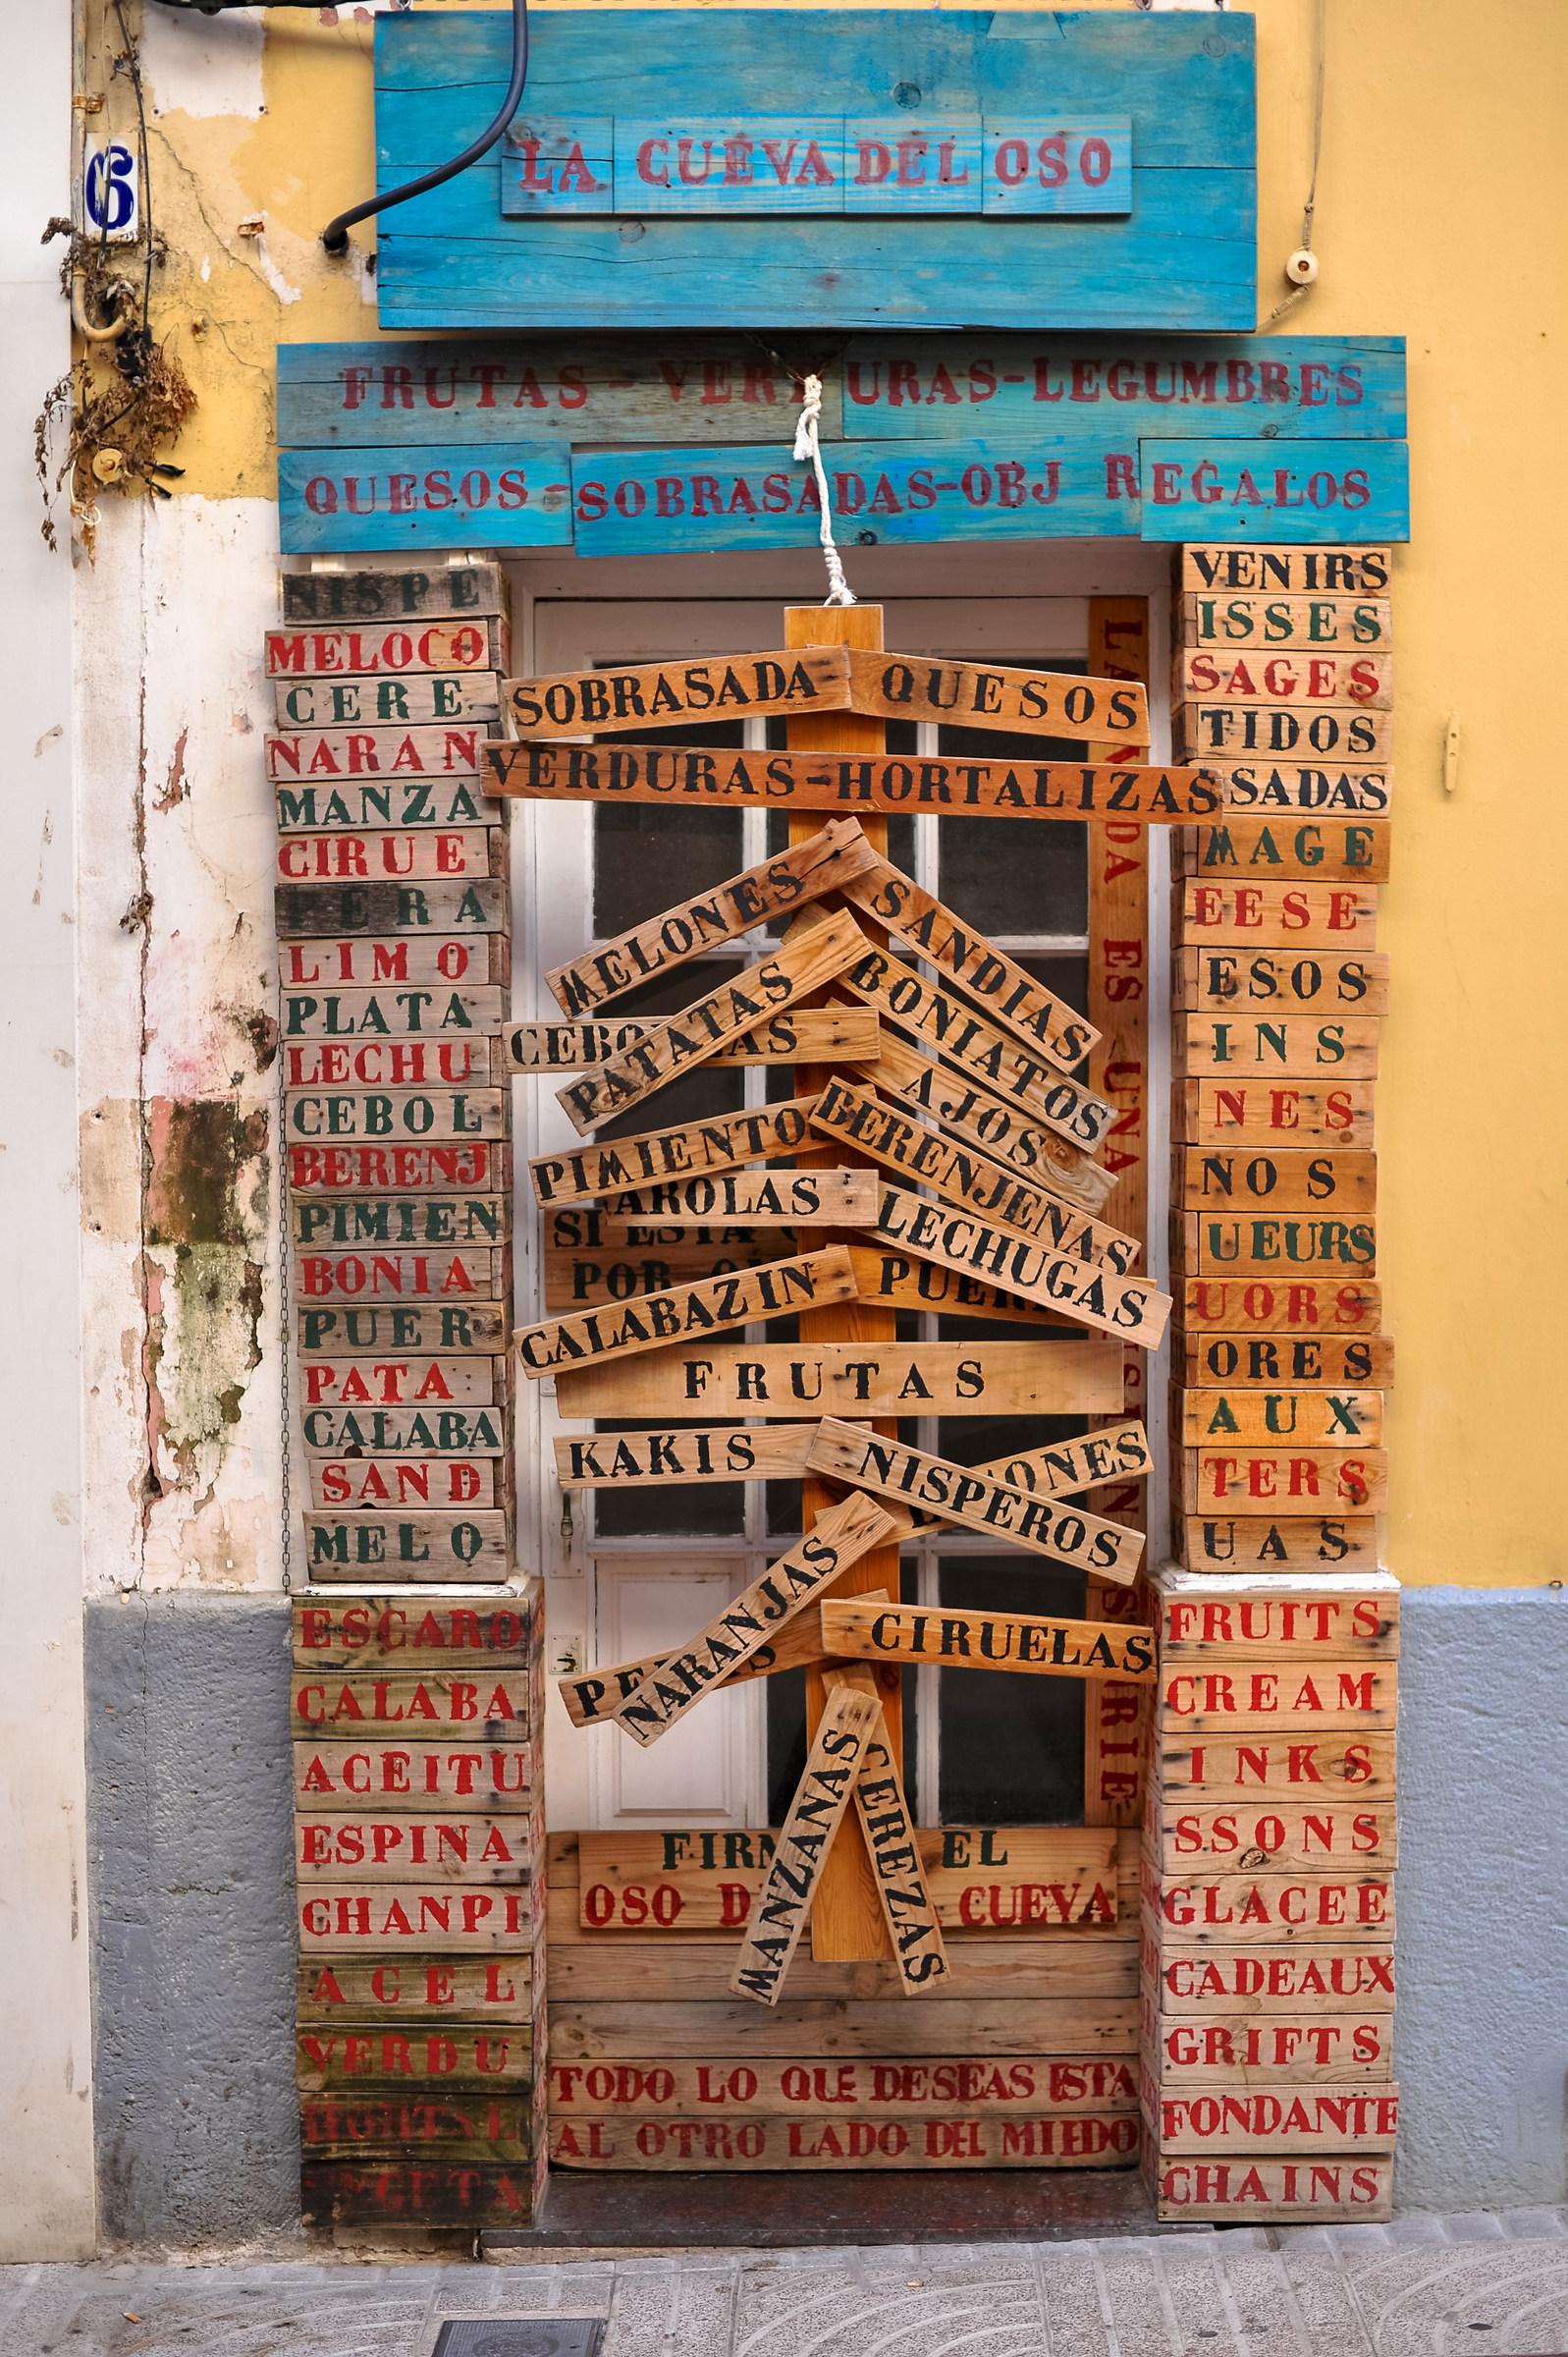 6
LA CUEVA DEL OSO
FRUTAS - VER URAS-LEGUMBRES
QUESOS - SOBRASADAS-OBJ REGALOS
NISPE
MELOCO
CERE
NARAN
MANZA
CIRUE
PERA
LIMO
PLATA
LECHU
CEBOL
BERENJ
PIMIEN
BONIA
PUER
PATA
CALABA
SAND
MELO
ESCARO
CALABA
ACEITU
ESPINA
CHANPI
ACEL
VERDU
SOBRASADA
QUESOS
VERDURAS-HORTALIZAS
MELONES
SANDIAS
PATATAS
BONIATOS
AJOS
PIMIENTOS
BERENJENAS
AROLAS
LECHUGAS
SI ESTA
POR
CALABAZIN
PUER
FRUTAS
KAKIS
NISPEROS
ONES
NARANJAS
CIRUELAS
MANZANAS
CEREZAS
ES UNA
FIRM EL
OSO D CUEVA
TODO LO QUE DESEAS ESTA
AL OTRO LADO DEL MIEDO
VENIRS
ISSES
SAGES
TIDOS
SADAS
MAGE
EESE
ESOS
INS
NES
NOS
UEURS
UORS
ORES
AUX
TERS
UAS
FRUITS
CREAM
INKS
SSONS
GLACEE
CADEAUX
GRIFTS
FONDANTE
CHAINS